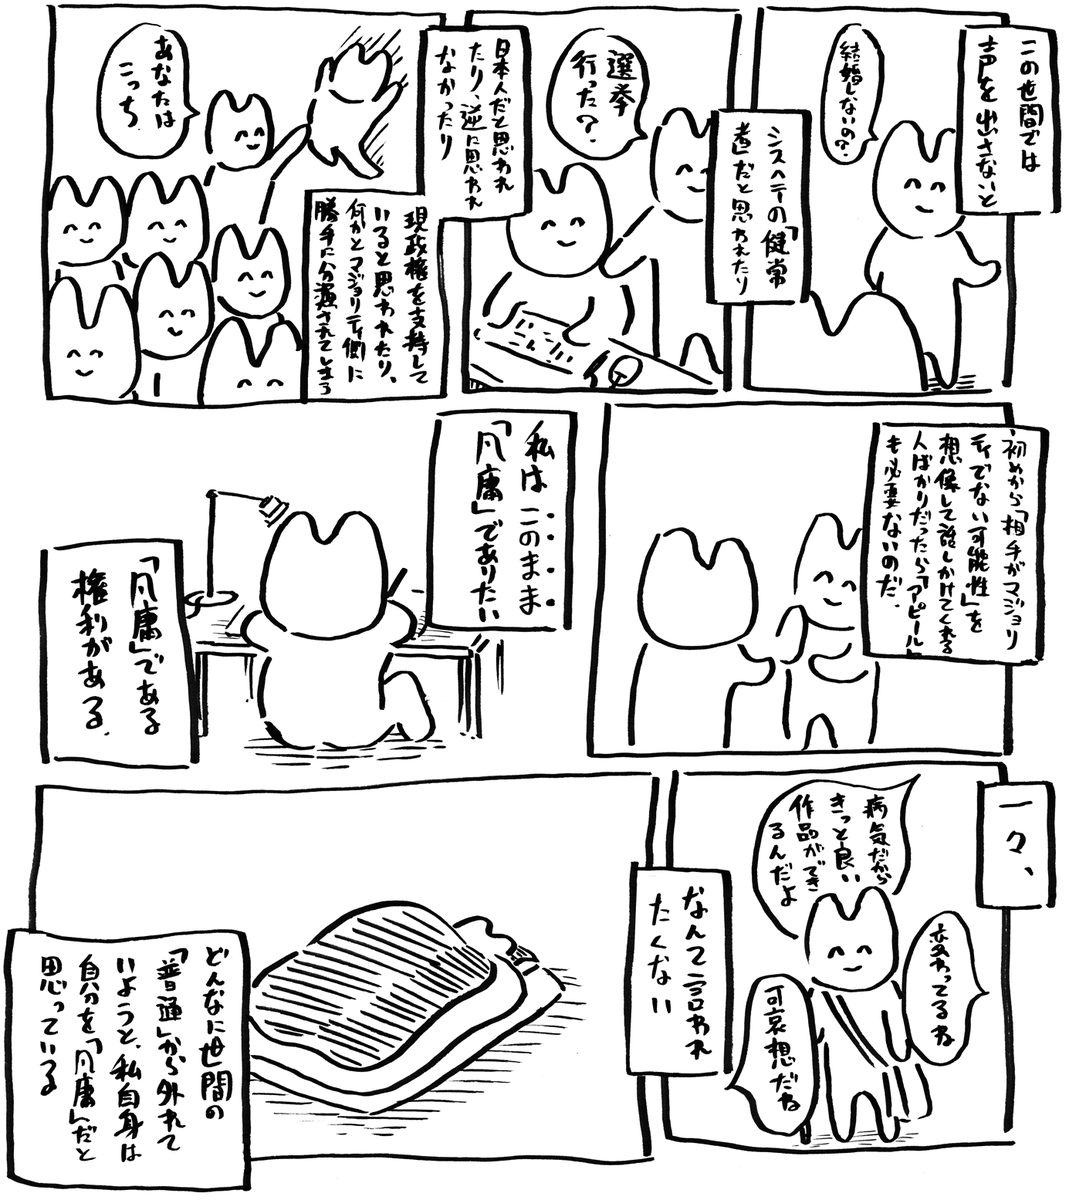 この世間では
声を出さないと
結婚しないの?
シスヘテの「健常
者」だと思われたり
選挙
行った?
日本人だと思われ
たり、逆に思われ
なかったり
現政権を支持して
いると思われたり、
何かとマジョリティ側に
勝手に分選されてしまう
あなたは
こっち
初めから「相手がマジョリ
ティでない可能性」を
想像して話しかけてくれる
人ばかりだったら「アピール」
も必要ないのだ。
私はこのまま
「凡庸」でありたい
「凡庸」である
権利がある。
一々、
病気だから
きっと良い
作品ができ
るんだよ
変わってるね
可哀想だね
なんて言われ
たくない
どんなに世間の
「普通」から外れて
いようと、私自身は
自分を「凡庸」だと
思っている